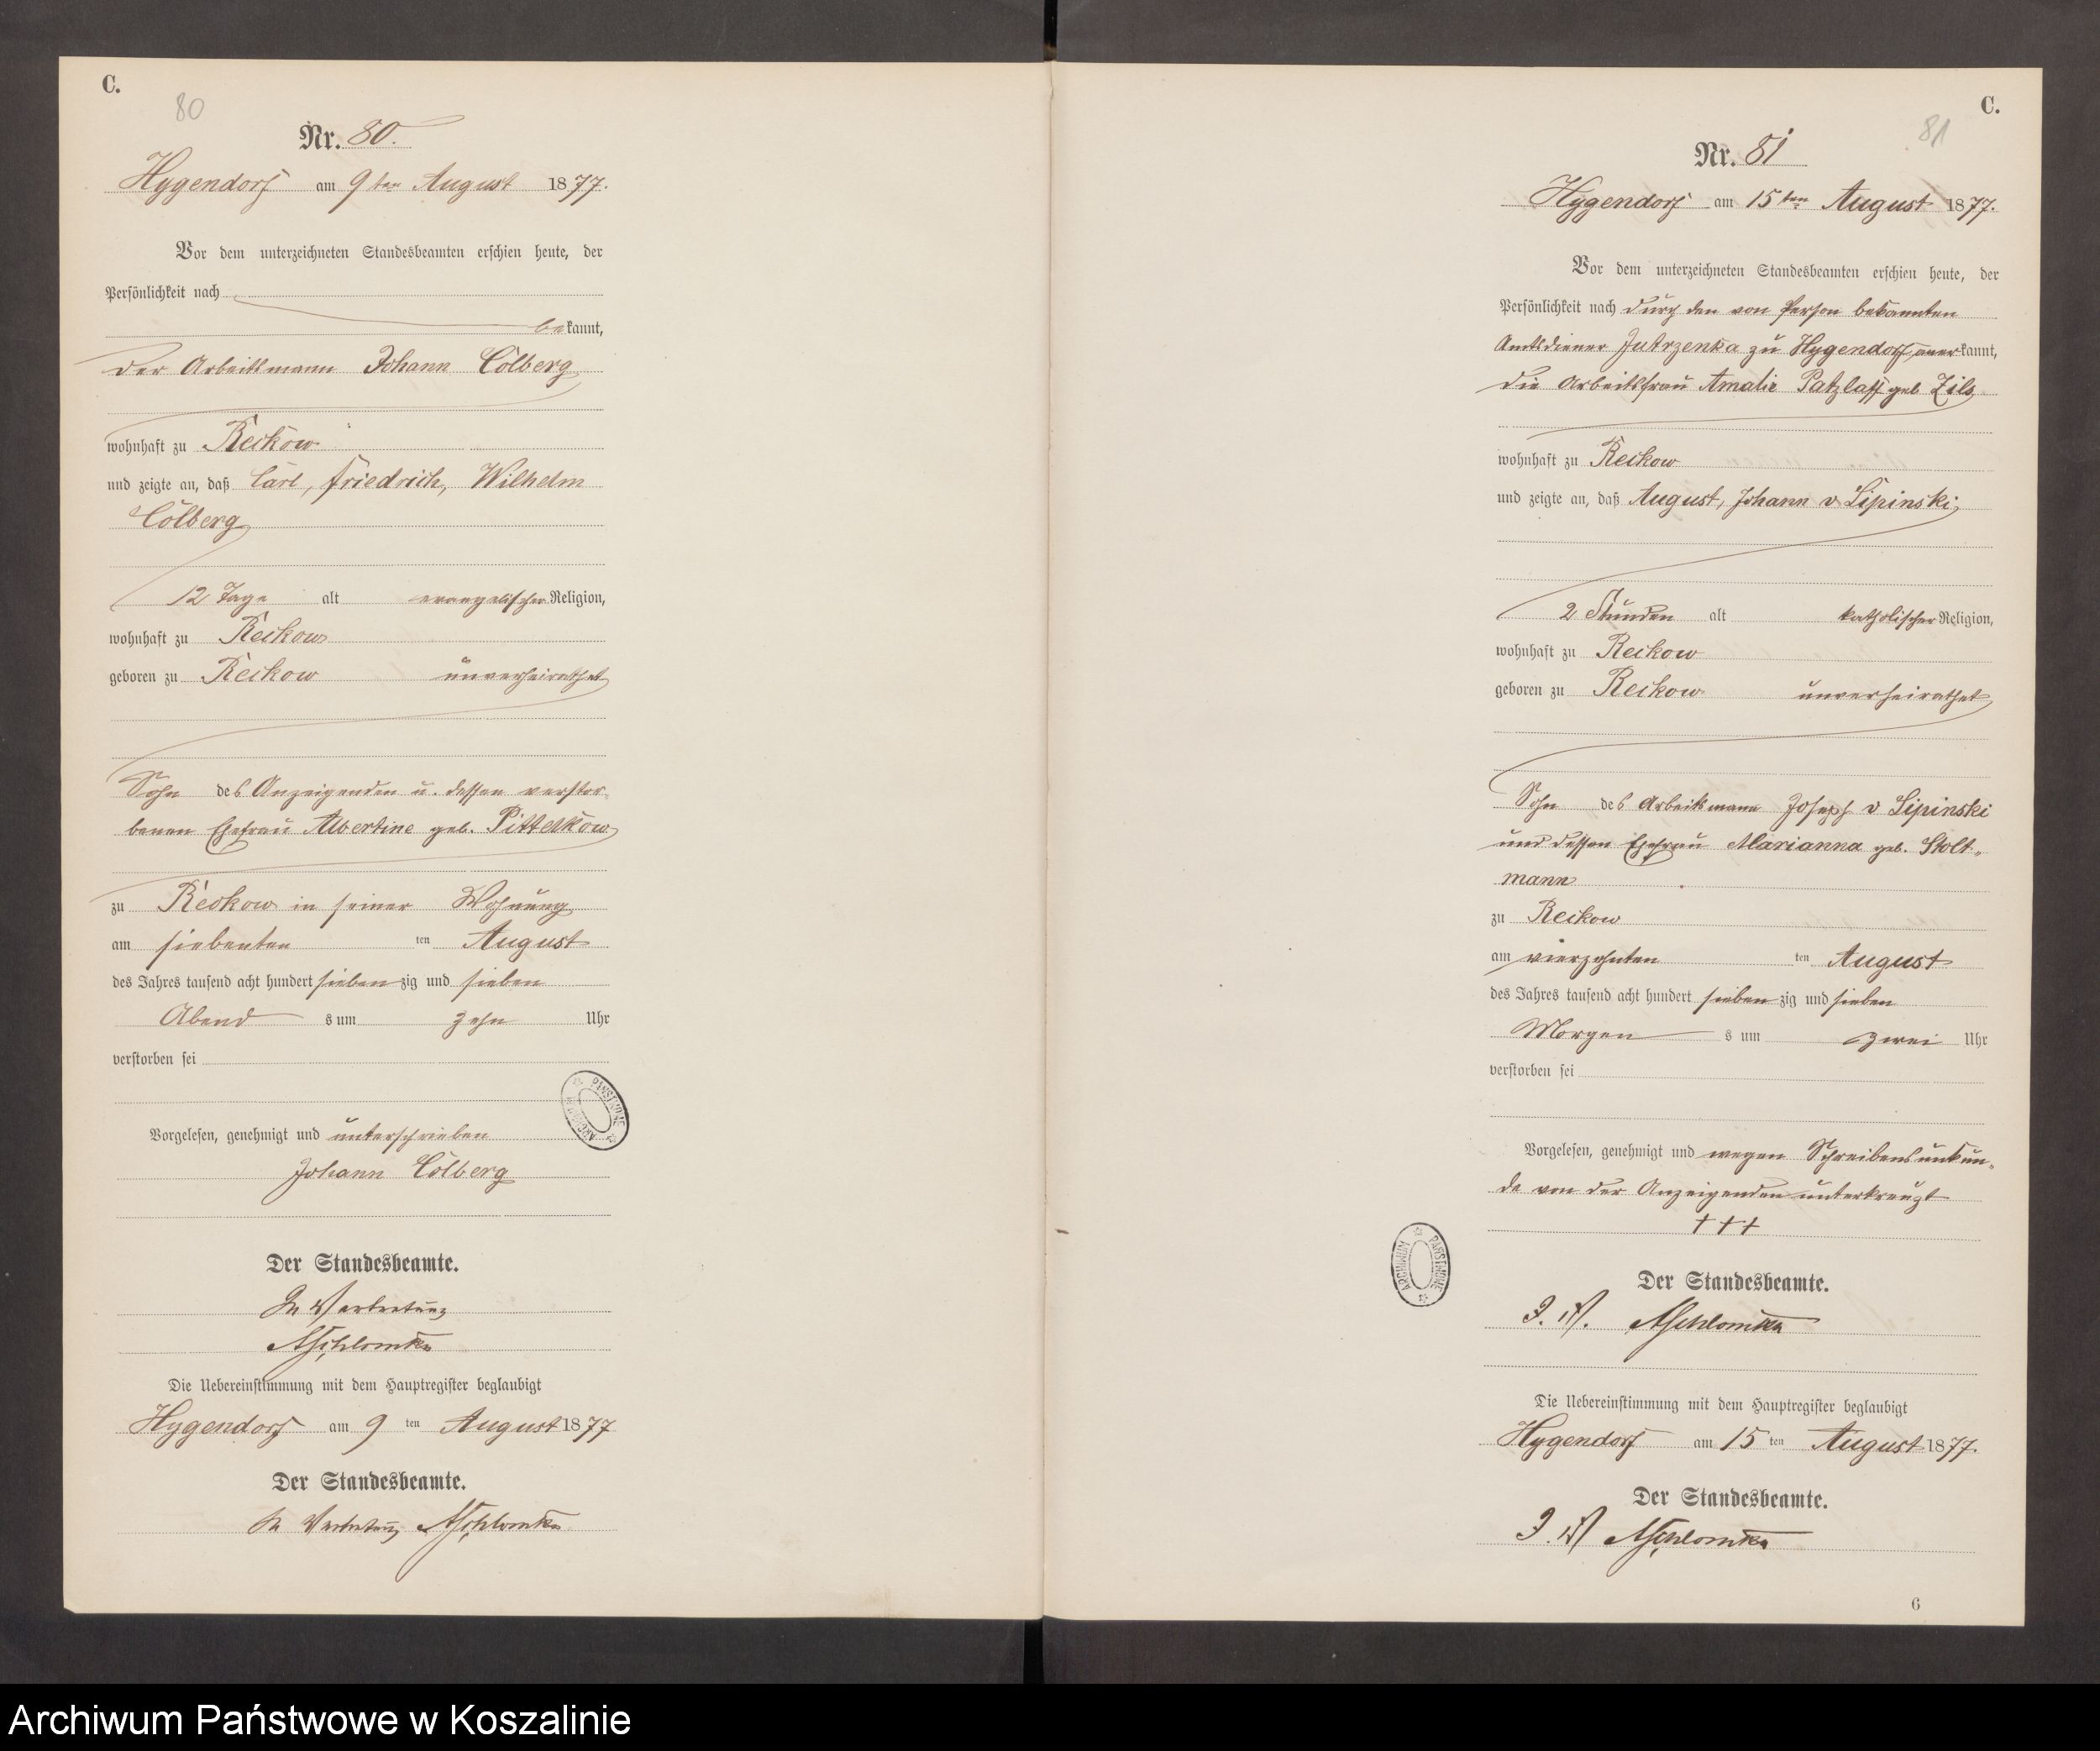 C.
80
Nr. 80.
Hygendorf am 9ten August 1877.
Vor dem unterzeichneten Standesbeamten erschien heute, der
Persönlichkeit nach
bekannt,
der Arbeitsmann Johann Cölberg
wohnhaft zu Reckow
und zeigte an, daß Carl, Friedrich, Wilhelm
Cölberg
12 Tage alt evangelischer Religion,
wohnhaft zu Reckow
geboren zu Reckow unverheirathet
Sohn des Anzeigenden u. dessen verstor-
benen Ehefrau Albertine geb. Pittelkow
zu Reckow in seiner Wohnung
am siebenten ten August
des Jahres tausend acht hundert siebenzig und sieben
Abend s um zehn Uhr
verstorben sei
Vorgelesen, genehmigt und unterschrieben
Johann Cölberg
Der Standesbeamte.
In Vertretung
Die Uebereinstimmung mit dem Hauptregister beglaubigt
Hygendorf am 9 ten August 1877
Der Standesbeamte.
In Vertretung
ARCHIWUM PAŃSTWOWE
C.
81
Nr. 81
Hygendorf am 15ten August 1877.
Vor dem unterzeichneten Standesbeamten erschien heute, der
Persönlichkeit nach durch den von Person bekannten
Amtsdiener Jutrzenka zu Hygendorf anerkannt,
die Arbeitsfrau Amalie Patzlaff geb Zils
wohnhaft zu Reckow
und zeigte an, daß August, Johann v Lipinski,
2 Stunden alt katholischer Religion,
wohnhaft zu Reckow
geboren zu Reckow unverheirathet
Sohn des Arbeitsmann Joseph v Lipinski
und dessen Ehefrau Marianna geb. Stolt-
mann
zu Reckow
am vierzehnten ten August
des Jahres tausend acht hundert siebenzig und sieben
Morgen s um zwei Uhr
verstorben sei
Vorgelesen, genehmigt und wegen Schreibensunkun-
de von der Anzeigenden unterkreuzt
+++
Der Standesbeamte.
I. V.
Die Uebereinstimmung mit dem Hauptregister beglaubigt
Hygendorf am 15 ten August 1877.
Der Standesbeamte.
I. V
ARCHIWUM PAŃSTWOWE
6
Archiwum Państwowe w Koszalinie